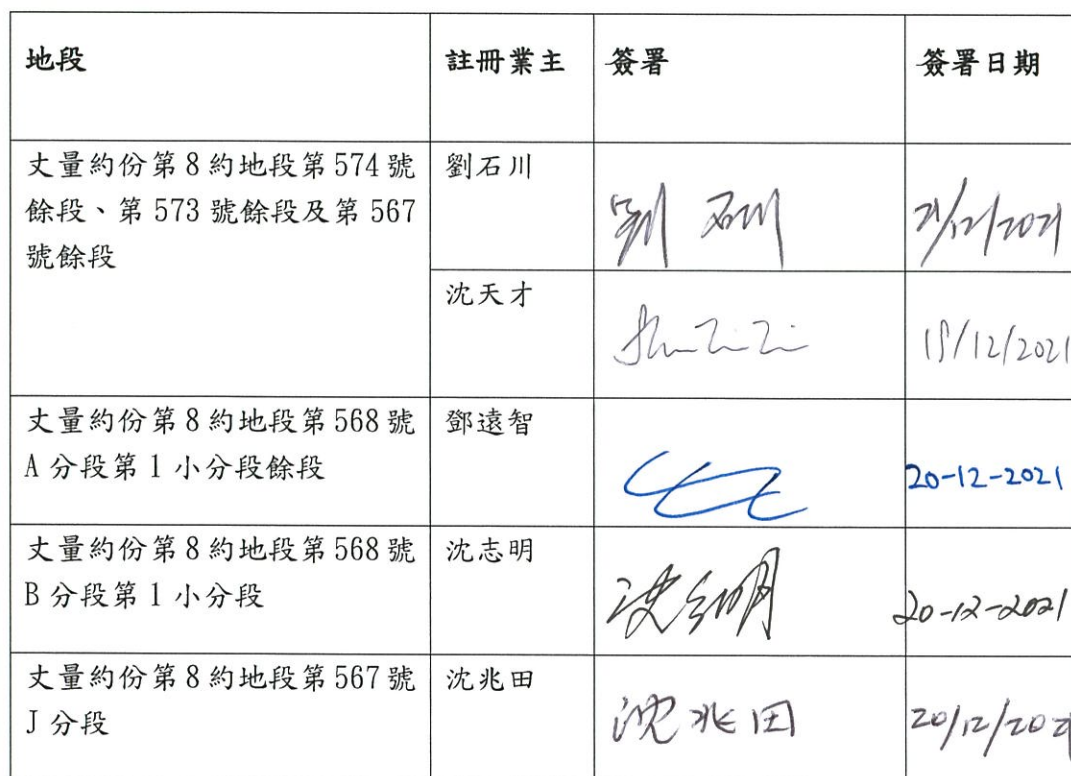 地段 註冊業主 簽署 簽署日期
丈量約份第8約地段第574號 劉石川
餘段、第573號餘段及第567 劉石川 21/12/2021
號餘段
沈天才
18/12/2021
丈量約份第8約地段第568號 鄧遠智
A分段第1小分段餘段 20-12-2021
丈量約份第8約地段第568號 沈志明
B分段第1小分段 沈志明 20-12-2021
丈量約份第8約地段第567號 沈兆田
J分段 沈兆田 20/12/2021